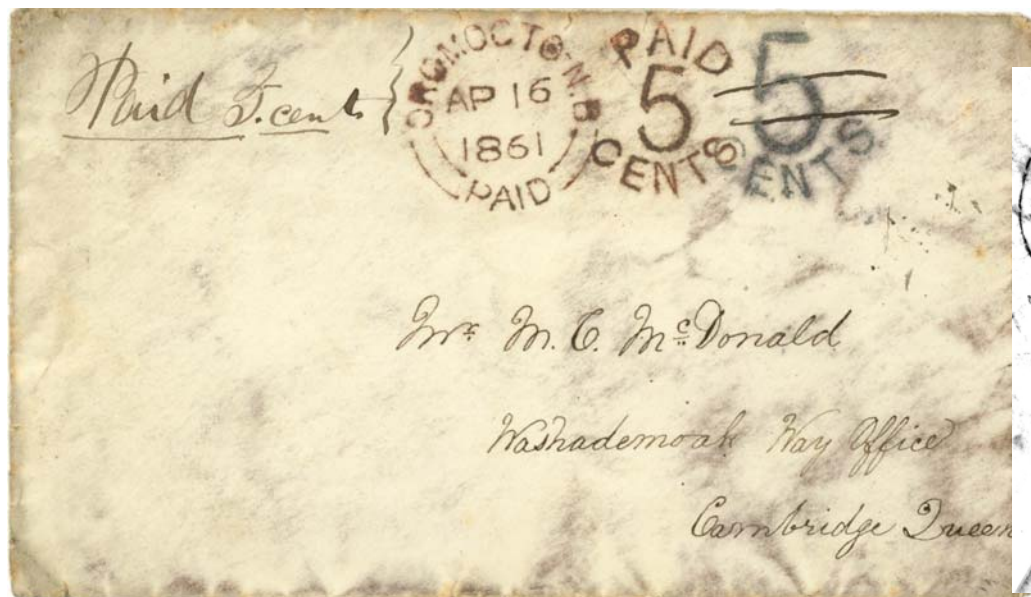 Paid 5. cents
OROMOCTO N.B
AP 16
1861
PAID
PAID
5
CENTS
5
ENTS
Mr. M. C. McDonald
Washademoak Way Office
Cambridge Queen